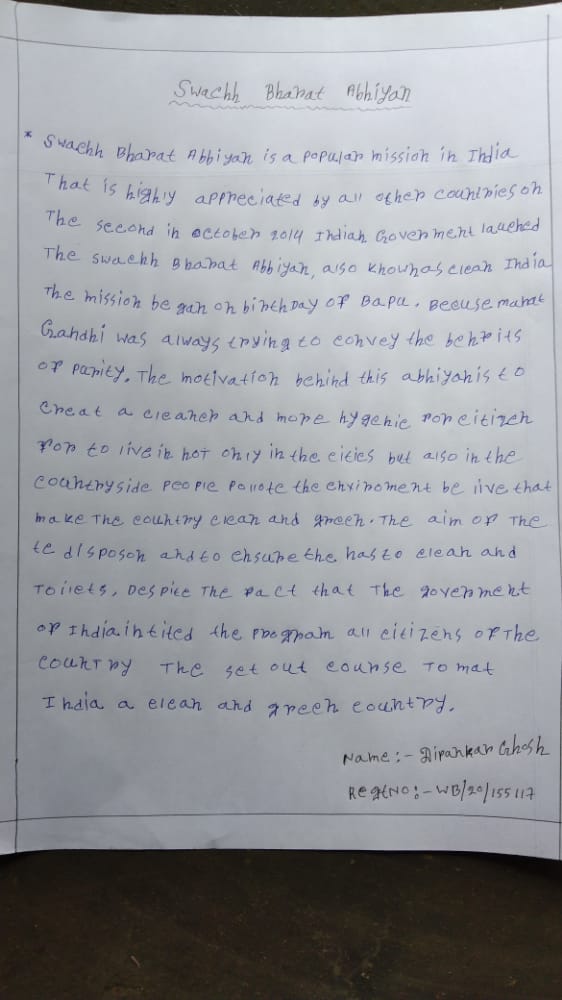 Swachh Bharat Abhiyan
* Swachh Bharat Abbiyan is a popular mission in India
That is highly appreciated by all other countries on
The second in october 2014 Indian Goverment lauched
The swachh Bharat Abbiyan, also knownas clean India
The mission be gan on birthDay of Bapu. Becuse mahat
Gandhi was always trying to convey the benfits
of parity. The motivation behind this abhiyanis to
creat a cleaner and more hygenic for citizen
for to live in not only in the cities but also in the
countryside people pollote the enviroment be live that
make The country clean and green. The aim of The
te disposon and to ensure the has to clean and
Toilets, Despite The fact that The goverment
of India intited the program all citizens of The
country The set out course To mat
India a clean and green country.
Name :- Dipankar Ghosh
RegtNO :- WB/20/155117